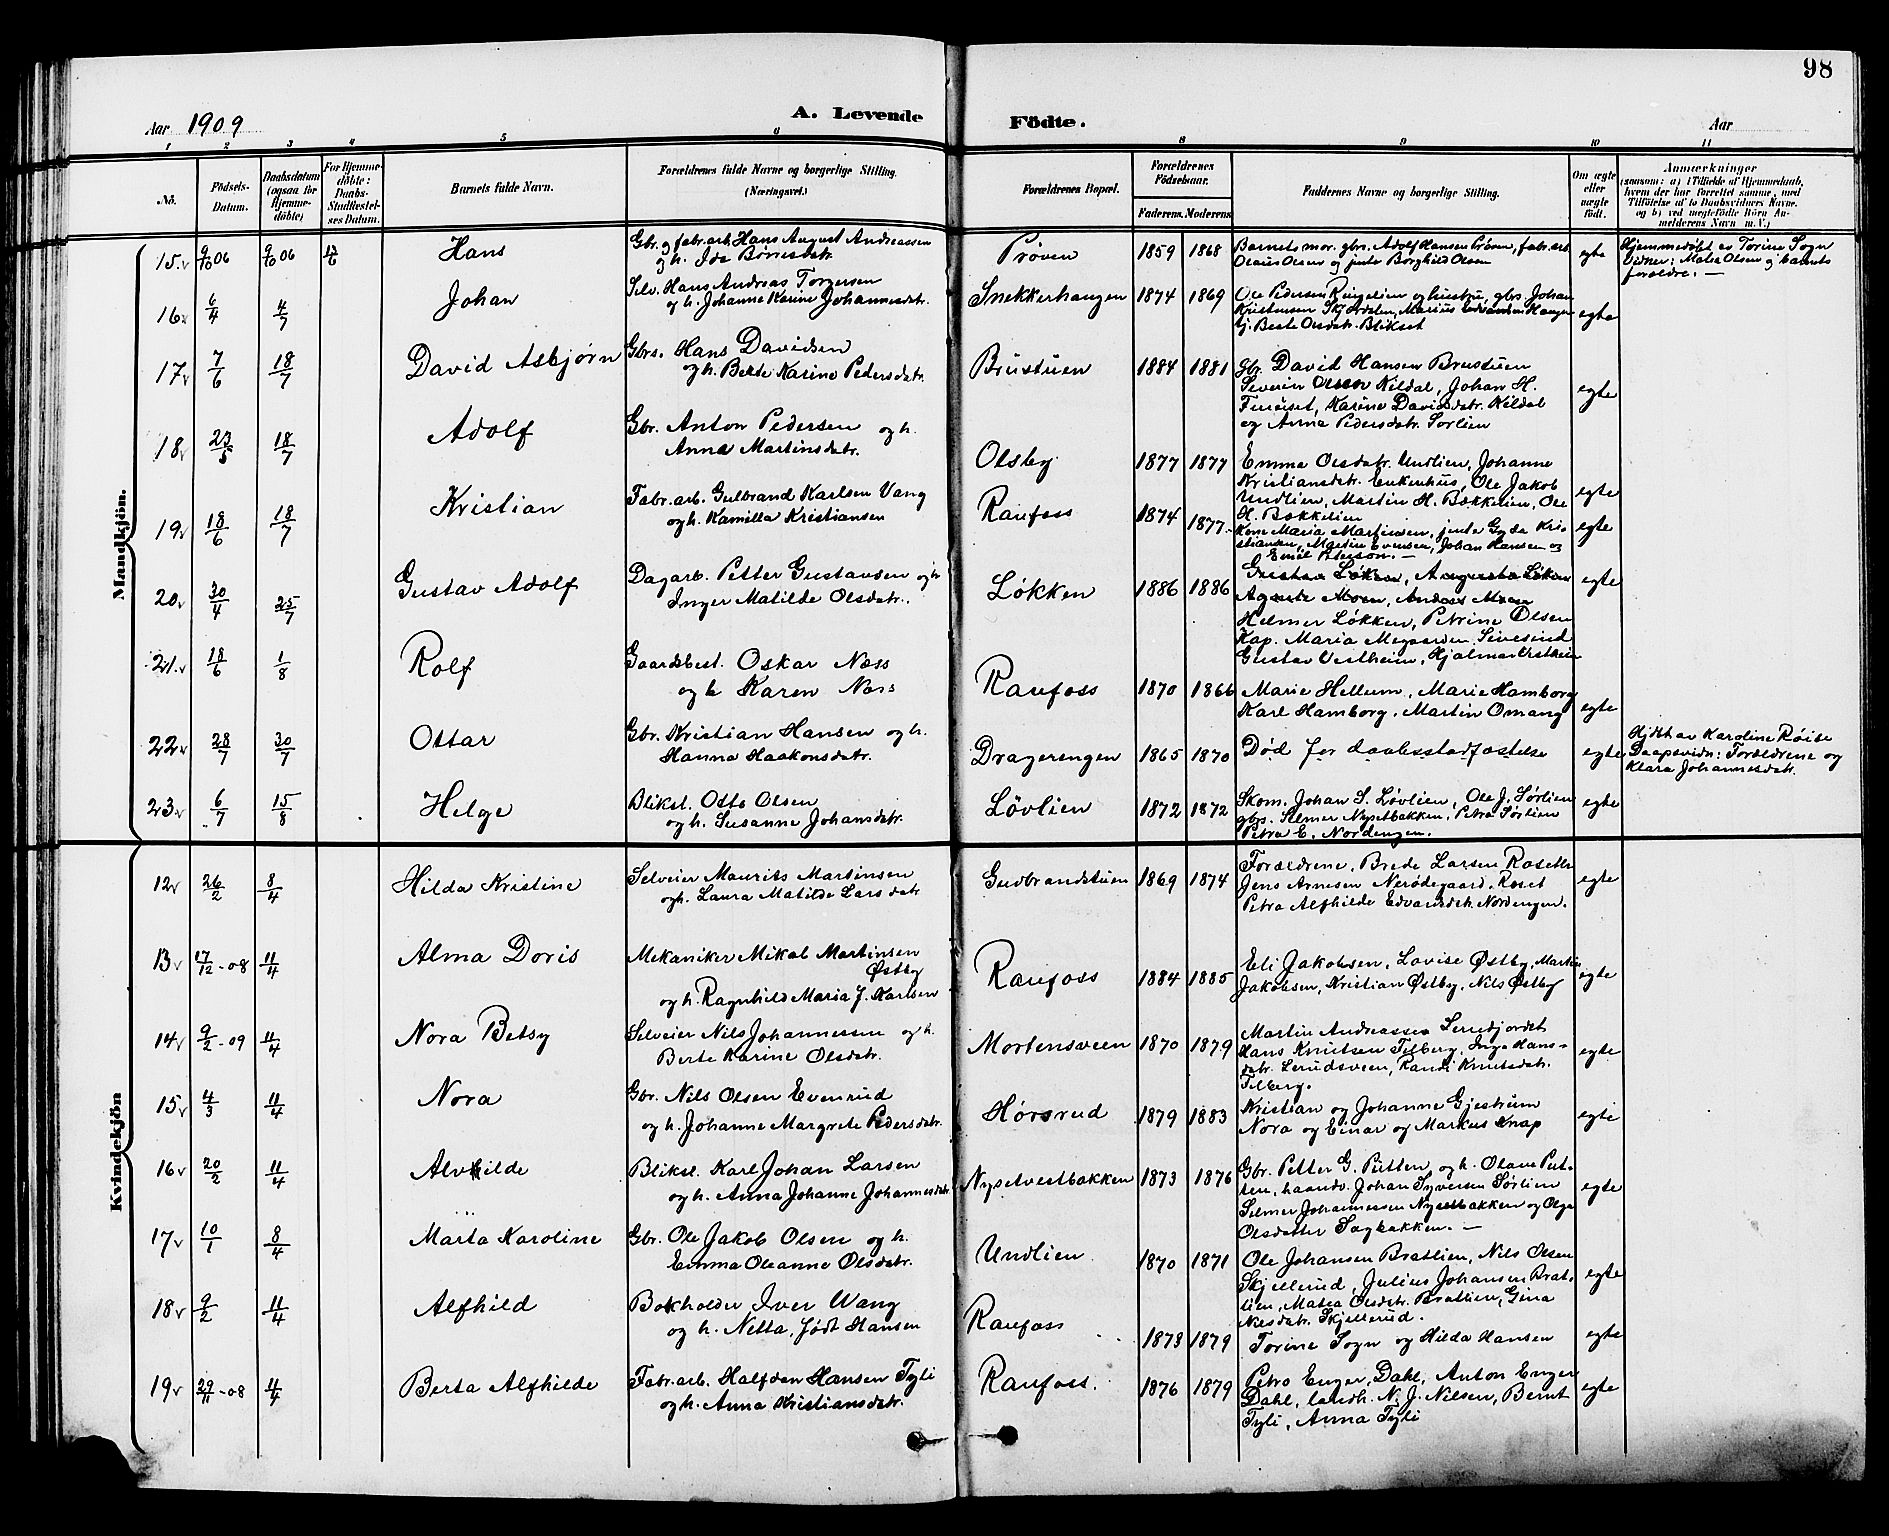 98
Aar 1909
A. Levende Födte.
Aar
1 2 3 4 5 6 8 9 10 11
No.
Födsels-Datum.
Daabsdatum (ogsaa for Hjemme-döbte)
For Hjemme-döbte: Daabs-Stadfæstel-ses Datum.
Barnets fulde Navn.
Forældrenes fulde Navne og borgerlige Stilling. (Næringsvei.)
Forældrenes Bopæl.
Forældrenes Födselsaar.
Faderens. Moderens.
Faddernes Navne og borgerlige Stilling.
Om ægte eller uægte födt.
Anmærkninger
(saasom: a) i Tilfælde af Hjemmedaab,
hvem der har forrettet samme, med
Tilföielse af to Daabsvidners Navne,
og b) ved uegtefödte Börn An-
melderens Navn m. V.)
Mandkjön.
15 9/10 06 9/10 06 Hans
Gbr. og fabr.arb. Hans August Andreassen
og h. Ida Börresdatr.
Prøven 1859 1868
Barnets mor. gbrs. Adolf Hansen Prøven, fabr.arb.
Olaus Olsen og jente Borghild Olsen
egte
Hjemmedøbt av Torine Sogn
Vidner: Matea Olsen og barnets
foreldre. —
16 6/4 4/7 Johan
Selv. Hans Andreas Torgersen
og h. Johanne Karine Johannesdatr.
Snekkerhaugen 1874 1869
Ole Pedersen Ringelien og hustru, gbrs. Johan
Kristensen Skjerdalen, Marius Edvardsen Haugen
tj. Berte Olsdatr. Blikset
egte
17 7/6 18/7 David Asbjørn
Gbrs. Hans Davidsen
og h. Berte Karine Pedersdatr.
Brustuen 1884 1881
gb. David Hansen Brustuen
Severin Olsen Kildal, Johan H.
Furuset, Karine Davidsdatr. Kildal
og Anna Pedersdatr. Sørlien
egte
18 23/5 18/7 Adolf
Gbr. Anton Pedersen og h.
Anna Martinsdatr.
Olsby 1877 1877
Emma Olsdatr. Undlien, Johanne
Kristiansdatr. Enkenhus, Ole Jakob
Undlien, Martin H. Bakkelien, Ole
H. Bakkelien
egte
19 18/6 18/7 Kristian
Fabr.arb. Gulbrand Karlsen Vang
og h. Kamilla Kristiansen
Raufoss 1874 1877
Kone Maria Martinsen, jente Gyda Kri-
stiansen, Martin Evensen, Johan Hansen og
Emil Peterson. —
egte
20 30/4 25/7 Gustav Adolf
Dagarb. Petter Gustavsen og h
Inger Matilde Olsdatr.
Løkken 1886 1886
Gustav Løken, Augusta Løken
Agnete Moen, Anders Moen
Helmer Løkken, Petrine Olsen
egte
21 18/6 1/8 Rolf
Gaardsbest. Oskar Næss
og h Karen Næss
Raufoss 1870 1866
Kap. Maria Megaarden Sivesind
Gustav Vestheim, Hjalmar Vestheim
Marie Hellum, Marie Hamborg
Karl Hamborg, Martin Omang
egte
22 28/7 30/7 Ottar
Gbr. Kristian Hansen og h.
Hanna Haakonsdatr.
Dragerengen 1865 1870
Død før daabsstadfæstelse
egte
Hjdbt av Karoline Røise
Daapsvidn: Forældrene og
Klara Johannesdatr.
23 6/7 15/8 Helge
Bliksl. Otto Olsen
og h. Susanne Johansdatr.
Løvlien 1872 1872
Skom. Johan S. Løvlien, Ole J. Sørlien
gbrs. Selmer Nysetbakken, Petra Sørlien
Petra E. Nordengen.
egte
Kvindekjön
12 26/2 8/4 Hilda Kristine
Selveier Maurits Martinsen
og h. Laura Matilde Larsdatr
Gudbrandstuen 1869 1874
Forældrene, Brede Larsen Rosetter
Jens Arnesen Nerødegaard, Roset
Petra Alfhilde Edvardsdtr. Nordengen.
egte
13 17/12-08 11/4 Alma Doris
Mekaniker Mikal Martinsen
Østby
og h. Ragnhild Maria J. Karlsen
Raufoss 1884 1885
Eli Jakobsen, Lovise Østby, Martin
Jakobsen, Kristian Østby, Nils Østby
egte
14 9/2-09 11/4 Nora Betsy
Selveier Nils Johannessen og h.
Berte Karine Olsdatr.
Mortensveen 1870 1879
Martin Andreassen Lerudjordet
Hans Knutsen Tilberg, Inga Hans-
datr. Lerudsveen, Randi Knutsdatr.
Tilberg.
egte
15 4/3 11/4 Nora
Gbr. Nils Olsen Evenrud
og h. Johanne Margrete Pedersdatr.
Hørsrud 1879 1883
Kristian og Johanne Gjestrum
Nora og Einar og Markus Knap
egte
16 20/2 11/4 Alvhilde
Bliksl. Karl Johan Larsen
og h. Anna Johanne Johannesdatr.
Nysetvestbakken 1873 1876
Gbr. Petter G. Pütten, og h. Olave Püt-
ten, haandv. Johan Syversen Sørlien
Selmer Johannessen Nysetbakken og Olga
Olsdatter Sagbakken. —
egte
17 10/1 8/4 Marta Karoline
Gbr. Ole Jakob Olsen og h.
Emma Oleanne Olsdatr.
Undlien 1870 1871
Ole Johansen Bratlien, Nils Olsen
Skjellerud, Julius Johansen Brat-
lien, Matea Olsdatr. Bratlien, Gina
Nilsdatr. Skjellerud.
egte
18 9/2 11/4 Alfhild
Bokholder Iver Wang
og h. Netta, født Hansen
Raufoss 1878 1879
Torine Sogn og Hilda Hansen
egte
19 29/11-08 11/4 Berta Alfhilde
Fabr.arb. Halfdan Hansen Tyli
og h. Anna Kristiansdatr.
Raufoss. 1876 1879
Petro Enger, Dahl, Anton Enger
Dahl, landh. N. J. Nilsen, Bernt
Tyli, Anna Tyli
egte